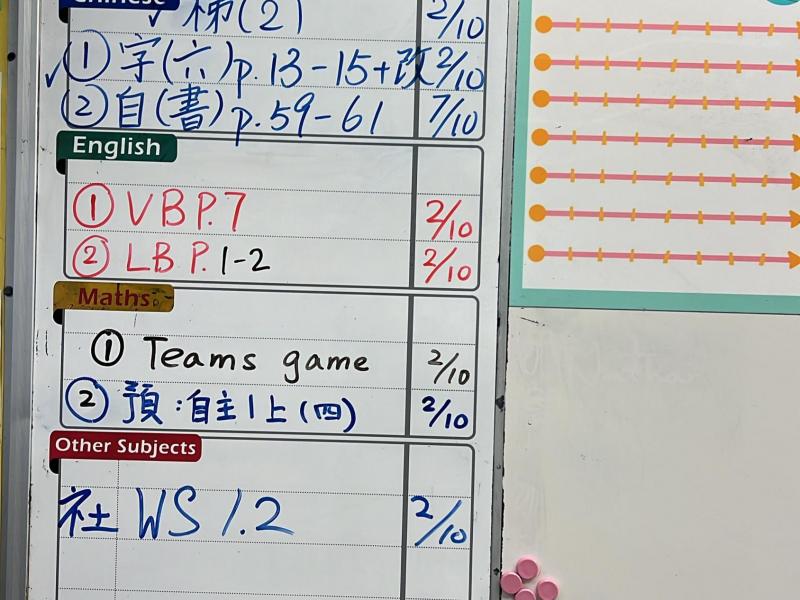 Chinese
梯(2) 2/10
✓① 字(六)p.13-15+改 2/10
② 自(書)p.59-61 7/10
English
① VB P.7 2/10
② LB P.1-2 2/10
Maths
① Teams game 2/10
② 預:自主1上(四) 2/10
Other Subjects
社 WS 1.2 2/10